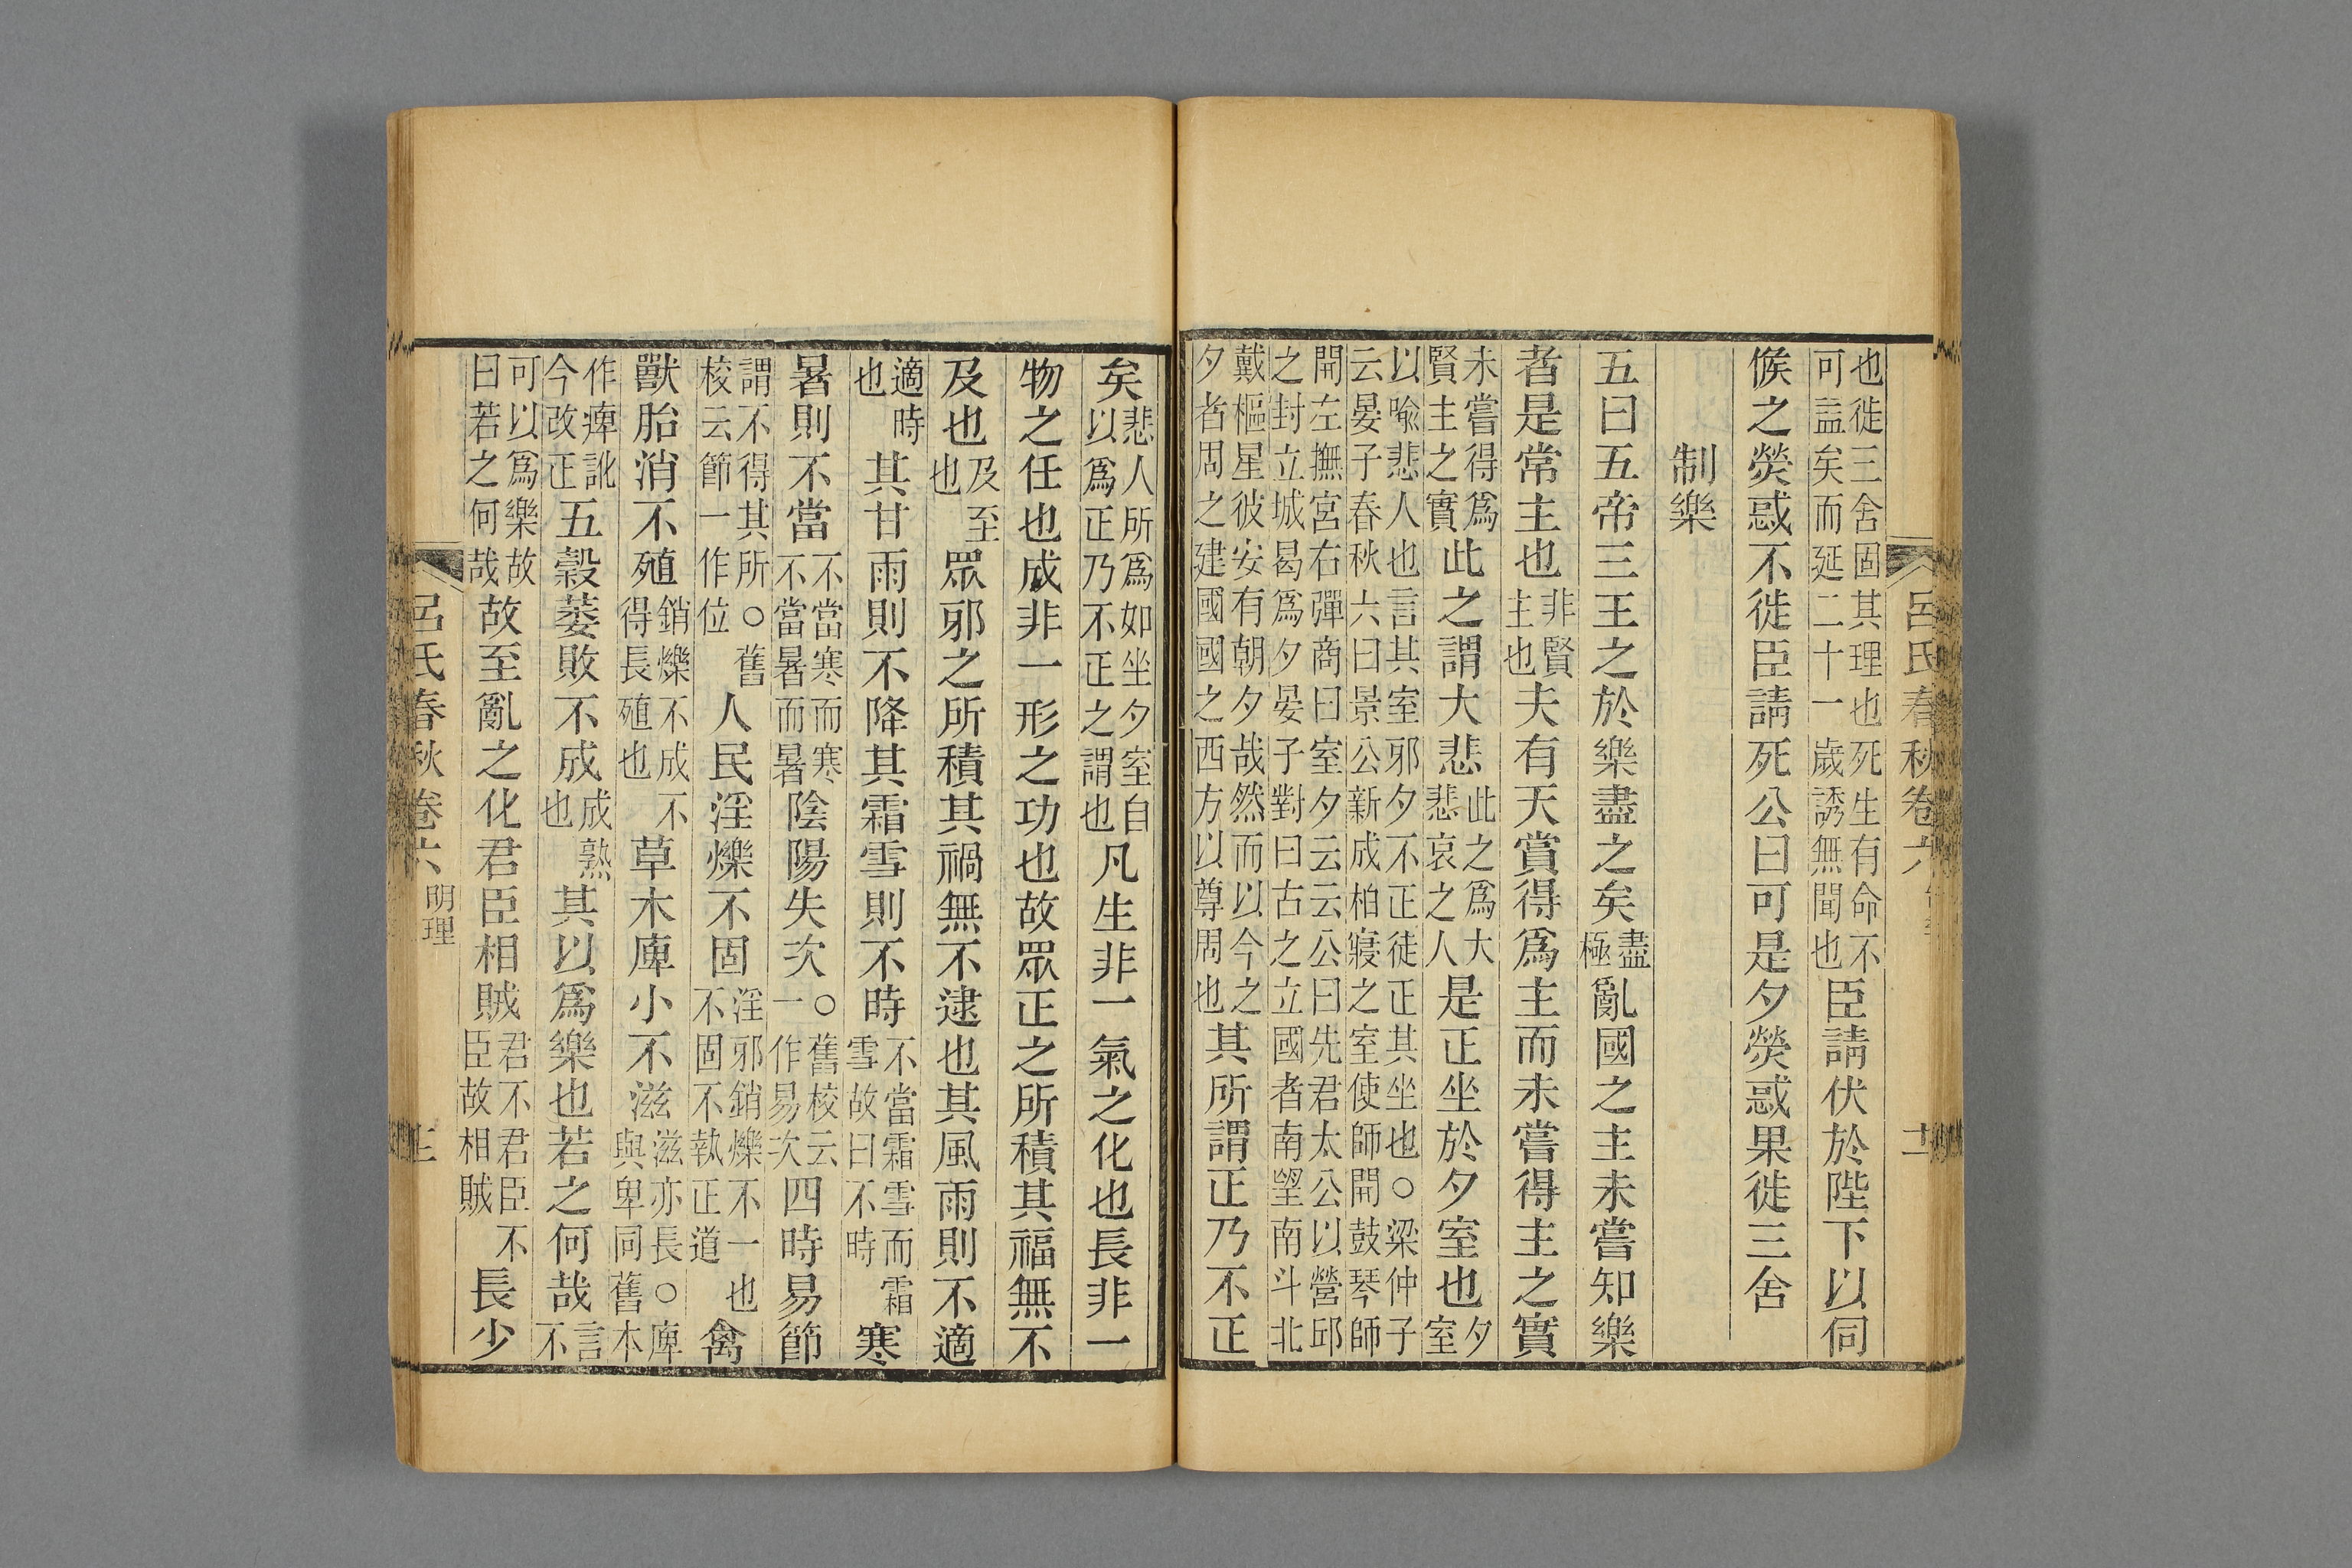 呂氏春秋卷六
也徙三舍固其理也死生有命不可益矣而延二十一歲誘無聞也臣請伏於陛下以伺
候之熒惑不徙臣請死公曰可是夕熒惑果徙三舍
制樂
五曰五帝三王之於樂盡之矣盡極亂國之主未嘗知樂
者是常主也非賢主也夫有天賞得爲主而未嘗得主之實
未嘗得爲賢主之實此之謂大悲此之爲大悲哀之人是正坐於夕室也夕室
以喻悲人也言其室邪夕不正徒正其坐也○梁仲子云晏子春秋六曰景公新成柏寢之室使師開鼓琴師
開左撫宮右彈商曰室夕云云公曰先君太公以營邱之封立城曷爲夕晏子對曰古之立國者南望南斗北
戴樞星彼安有朝夕哉然而以今之夕者周之建國國之西方以尊周也其所謂正乃不正
矣悲人所爲如坐夕室自以爲正乃不正之謂也凡生非一氣之化也長非一
物之任也成非一形之功也故眾正之所積其福無不
及也及至也眾邪之所積其禍無不逮也其風雨則不適
適時也其甘雨則不降其霜雪則不時不當霜雪而霜雪故曰不時寒
暑則不當不當寒而寒不當暑而暑陰陽失次○舊校云一作易次四時易節
謂不得其所○舊校云節一作位人民淫爍不固淫邪銷爍不一也不固不執正道禽
獸胎消不殖銷爍不成不得長殖也草木庳小不滋滋亦長○庳與卑同舊本
作痺訛今改正五穀萎敗不成成熟也其以爲樂也若之何哉言不
可以爲樂故曰若之何哉故至亂之化君臣相賊君不君臣不臣故相賊長少
呂氏春秋卷六 明理